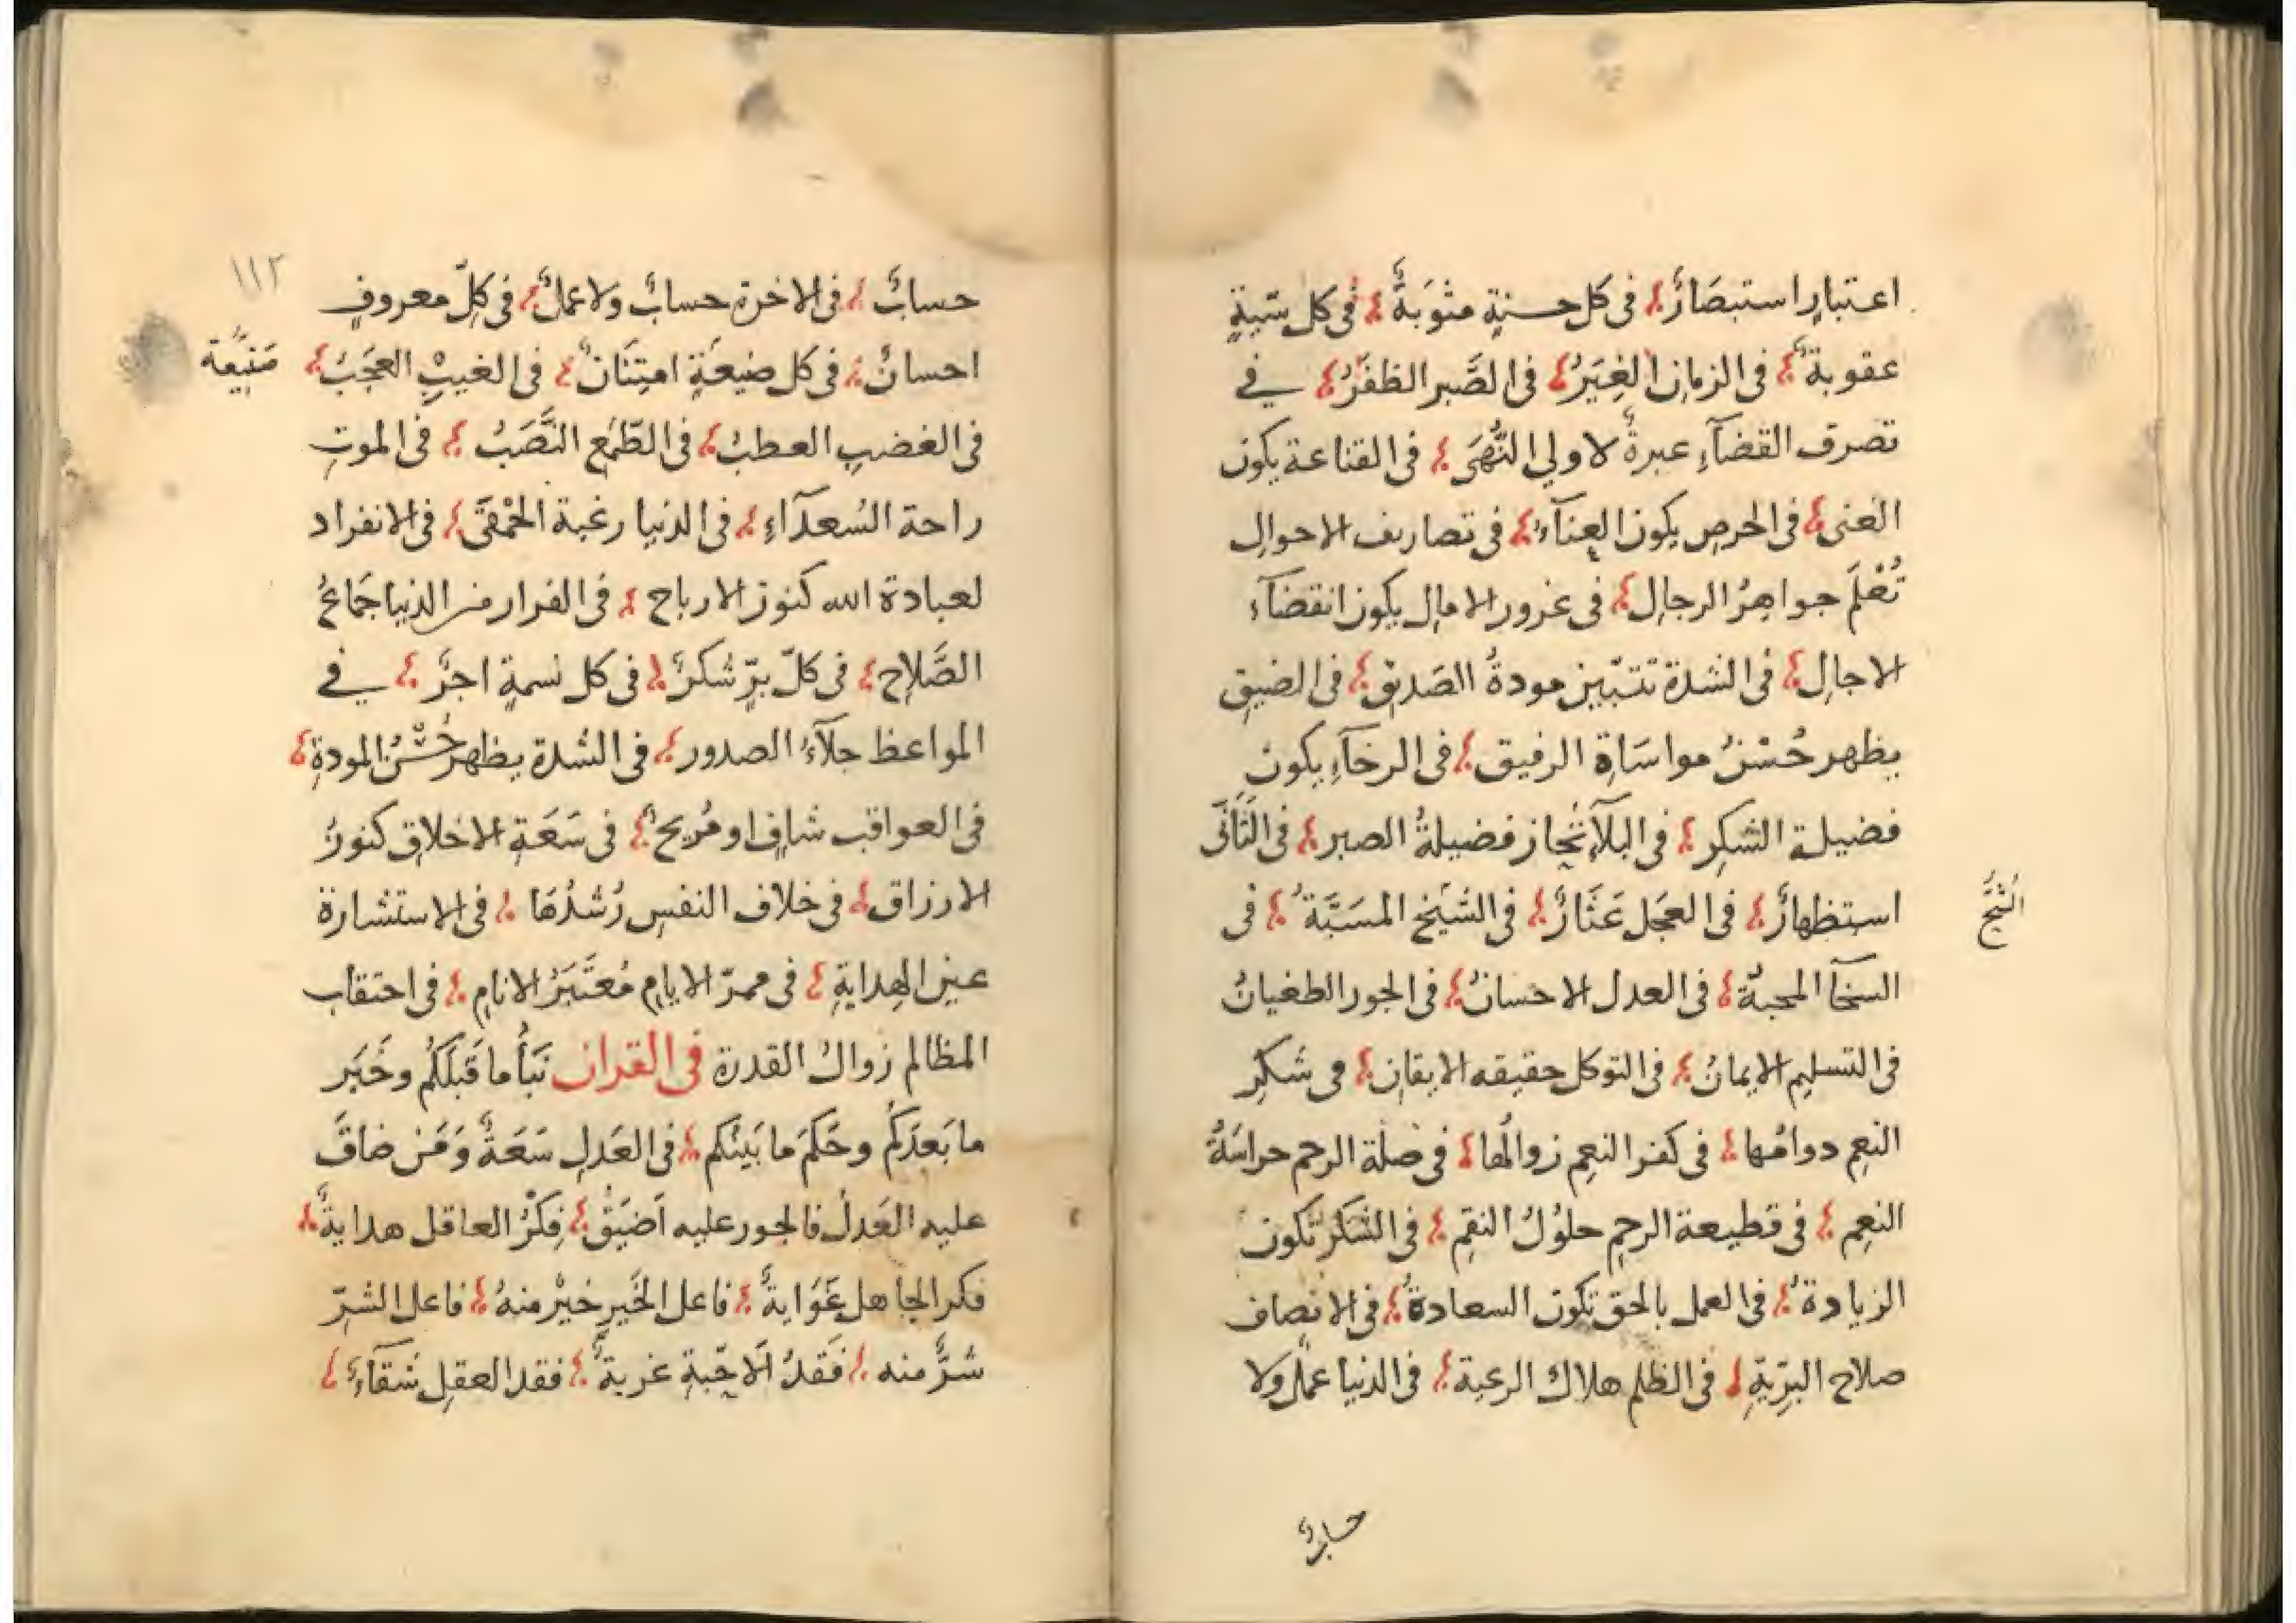 اعتبارٍ استبصَارٌ في كل حسنةٍ مثوَبَةٌ في كل سّيةٍ
عقوبةٌ في الزمان الغِيَرُ في الصَّبر الظفَرُ في
تصرف القضآءِ عبرةٌ لاولي النُّهَى في القناعة يكون
الغنى في الحرصِ يكون العنآءُ في تصاريف الاحوالِ
تُعْلَمَ جواهِرُ الرجالِ في غرور الامالِ يكون انقضآء
الاجالِ في الشدة تتبّين مودةُ الصَديقِ في الضيقِ
يظهر حُسْنُ مواسَاةِ الرفيق في الرخآءِ يكون
فضيلة الشكرِ في البلآءِ تُحاز فضيلةُ الصبر في التَأَنّى
استظهارٌ في العجَل عَثَارٌ في الشَيْخ المسَبَّةُ في
الشُحّ
السخآ المحبةُ في العدل الاحسانُ في الجور الطغيانُ
في التسليمِ الايمانُ في التوكل حقيقه الايقانِ في شكرِ
النعمِ دوامُها في كفر النعمِ زوالُها في صلة الرحم حراسَةُ
النعِم في قطيعة الرحِم حلوُلُ النقِم في الشكر تكون
الزيادةُ في العمل بالحق تكون السعادةُ في الانصاف
صلاح البرّيةِ في الظلم هلاك الرعية في الدنيا عملٌ ولا
حسابٌ
١١٢
حسابٌ في الاخرة حسابٌ ولا عملٌ في كلّ معروفٍ
احسانٌ في كل ضيعَةٍ امتِنَانٌ في الغيبِ العجَبُ
صَنِيعَة
في الغضبِ العطبُ في الطّمَع النَّصَبُ في الموتِ
راحة السُعدَآءِ في الدنيا رغبة الحَمْقَى في الانفراد
لعبادة الله كنوز الارباح في الفرار من الدنيا جَماعُ
الصَّلاحِ في كلّ برٍّ شكرٌ في كل نسمةٍ اجرٌ في
المواعظ جلآءُ الصدور في الشدة يظهر حُسْنُ المودةِ
في العواقب شافٍ او مُريحٌ في سَعَةِ الاخلاق كنوزُ
الارزاق في خلاف النفسِ رُشدُهَا في الاستشارة
عين الهدايةِ في ممرّ الايامِ مُعتَبَرُ الانامِ في احتقاب
المظالم زوالُ القدرة في القران نَبَأُ ما قَبلَكُم وخَبَر
ما بَعدَكُم وحَكَمَ ما بَينَكم في العَدلِ سَعَةٌ وَمَن ضاقَ
عليه العَدلُ فالجور عليه اَضيَقُ فِكرُ العاقل هدايةٌ
فكر الجاهل غَوَايةٌ فاعل الخَيرِ خيرٌ منهُ فاعل الشرّ
شرٌّ منه فَقدُ الاحّبةِ غربةٌ فقد العقلِ شَقآءٌ